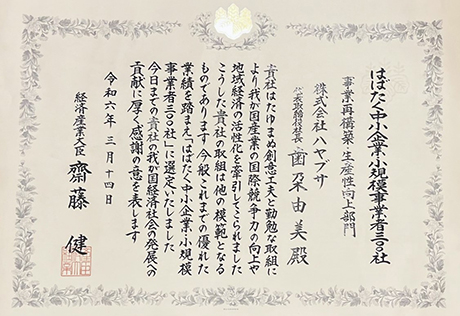 はばたく中小企業・小規模事業者三〇〇社
事業再構築・生産性向上部門
株式会社ハヤブサ
代表取締役社長 歯朶由美殿
貴社はたゆまぬ創意工夫と勤勉な取組に
より我が国産業の国際競争力の向上や
地域経済の活性化を牽引してこられました
こうした貴社の取組は他の模範となる
ものであります 今般これまでの優れた
業績を踏まえ「はばたく中小企業・小規模
事業者三〇〇社」に選定いたしました
今日までの貴社の我が国経済社会の発展への
貢献に厚く感謝の意を表します
令和六年三月十四日
経済産業大臣 齋藤健